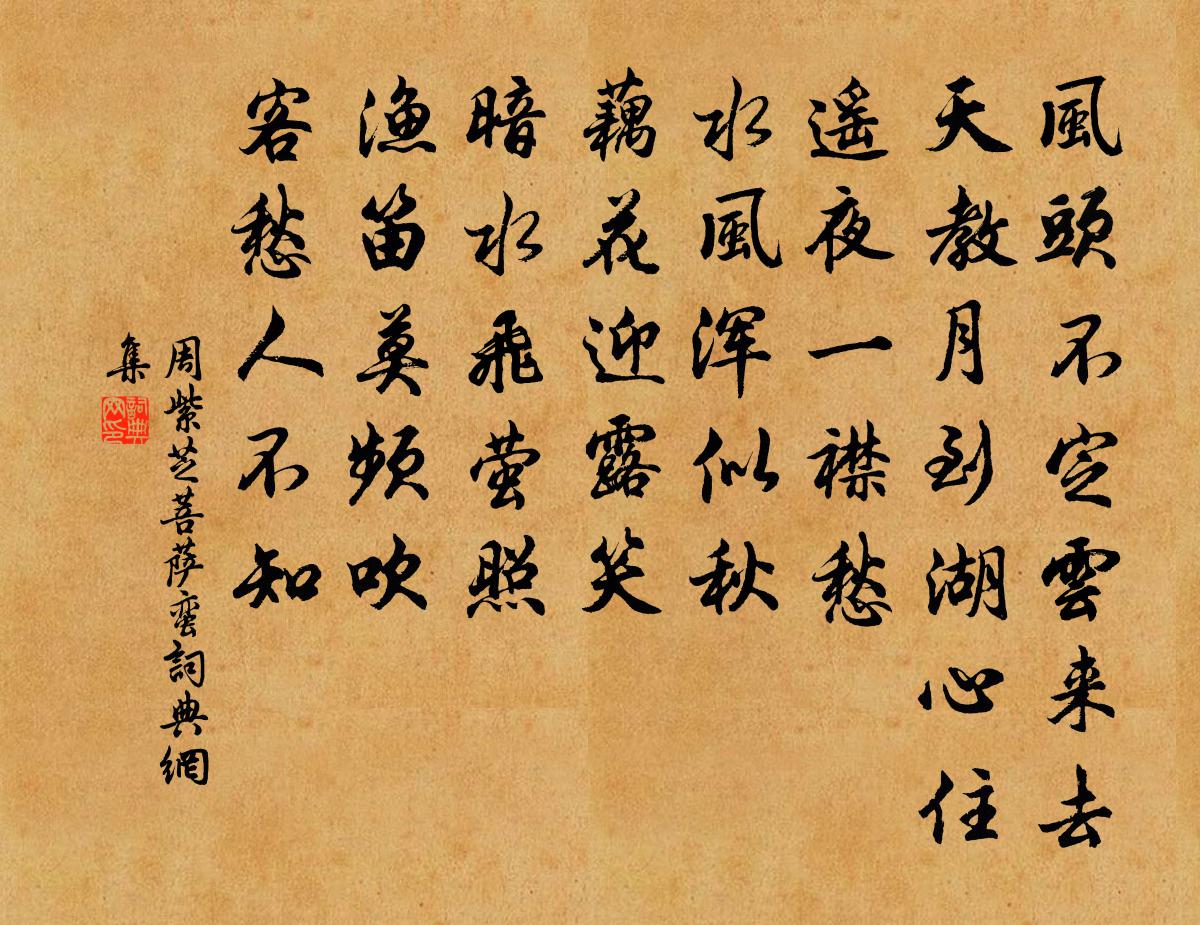 風頭不定雲来去
天教月到湖心住
遥夜一襟愁
水風浑似秋
藕花迎露笑
暗水飛萤照
渔笛莫频吹
客愁人不知
周紫芝菩萨蛮詞典網
集
詞典
网印